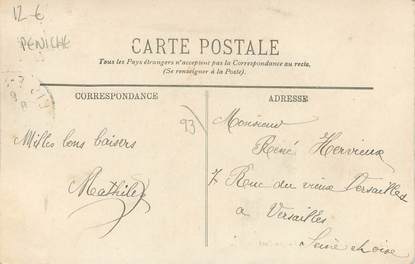 12-6
PENICHE
CARTE POSTALE
Tous les Pays étrangers n'acceptent pas la Correspondance au recto.
(Se renseigner à la Poste).
CORRESPONDANCE
ADRESSE
93)
Milles bons baisers
Mathilde
Monsieur
René Hervieux
7 Rue du vieux Versailles
a Versailles
Seine et oise